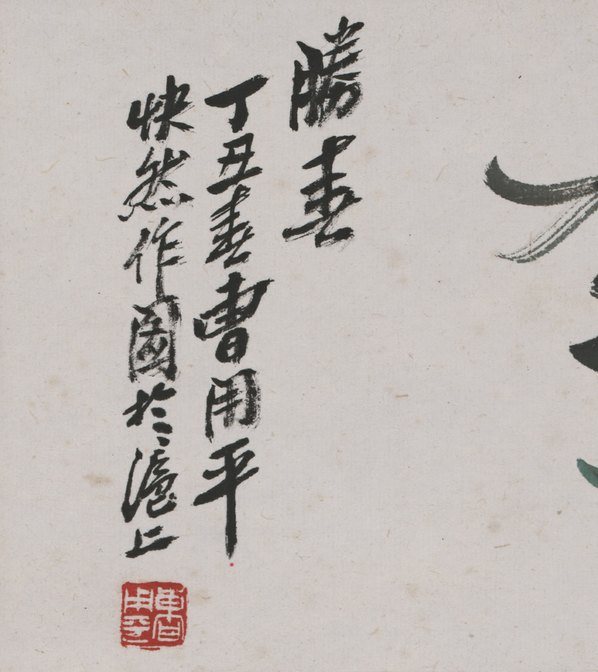 勝春
丁丑春曹用平
快然作圖於滬上
曹用平